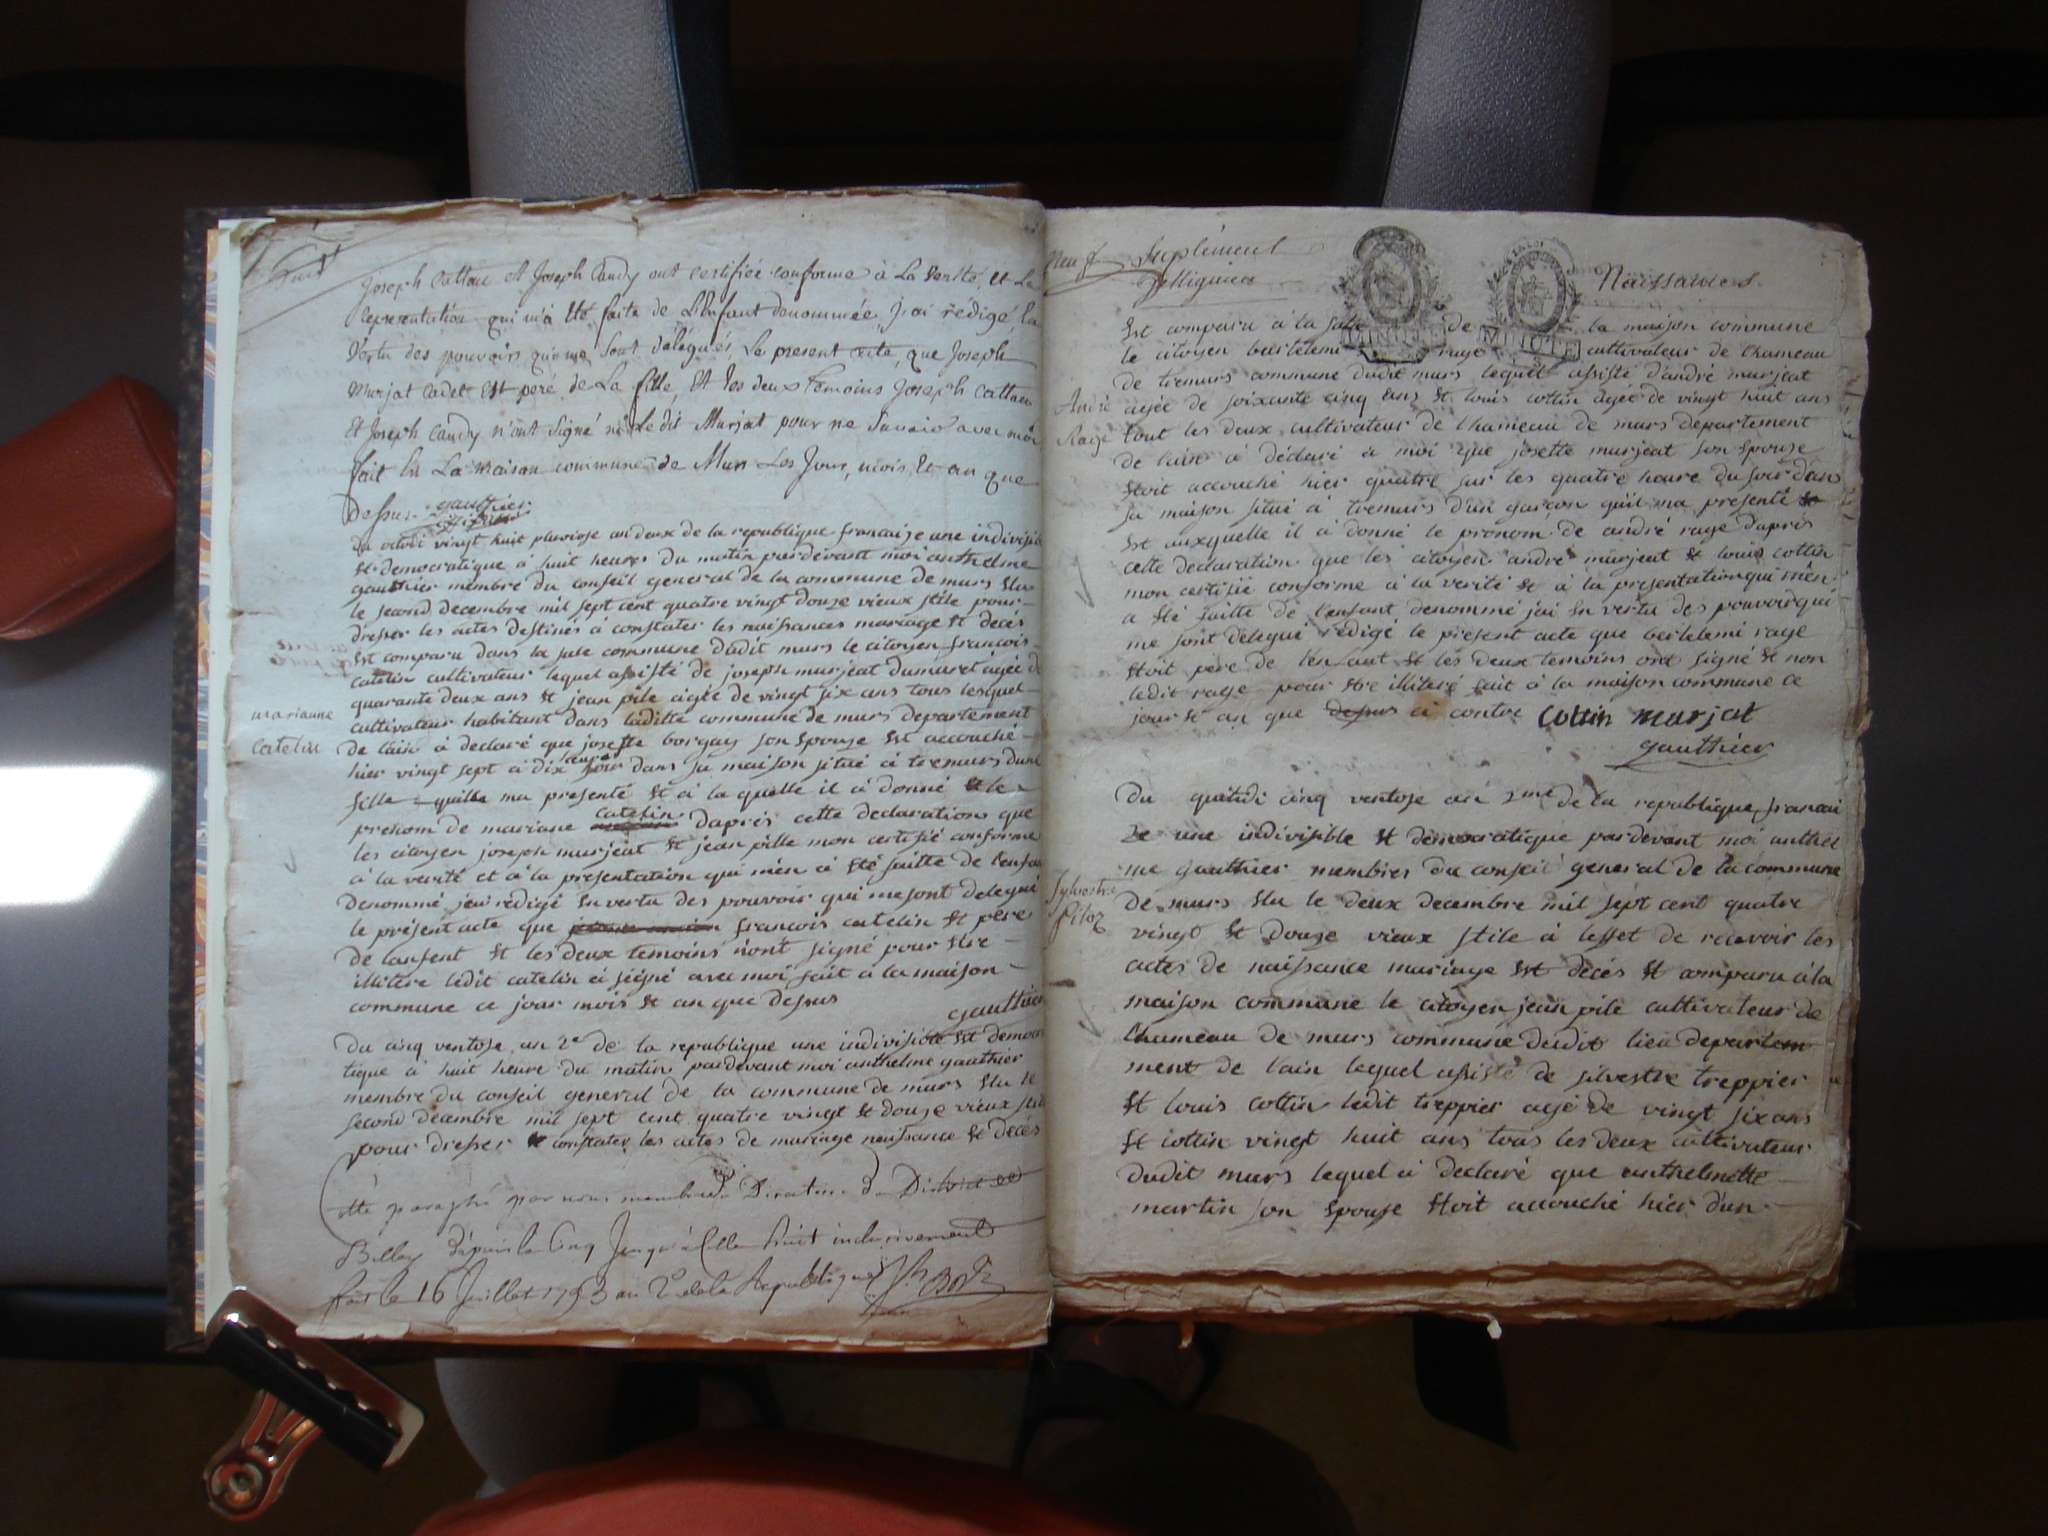 huit
Joseph Cattau et Joseph Candy ont certifiée conforme à La verité, et La
representation qui m'a été faite de L'Enfant denommée, J'ai redigé, En
Vertu des pouvoirs qui me sont délégués, Le present acte, que Joseph
Murjat Cadet est peré de La fille, Et Les deux Temoins Joseph Cattau
Et Joseph Candy n'ont signé ni Le dit Murjat pour ne Savoir avec moi
fait En La maison commune de Murs Les Jour, mois, Et an que
Dessus. gauthier
Du octodi vingt huit pluviose an deux de la republique francaise une indivisible
et democratique à huit heures du matin pardevant moi anthelme
gauthier membre du conseil general de la commune de murs élu
le second decembre mil sept cent quatre vingt douze vieux stile pour
dresser les actes destinés à constater les naissances mariage et decés
est comparu dans la sale commune dudit murs le citoyen francois
catelin cultivateur lequel assisté de joseph murjeat dumuret agée de
quarante deux ans et jean pile agée de vingt six ans tous lesquel
cultivateur habitant dans laditte commune de murs departement
marianne
catelin
de lain à declaré que josepte borgay son epouse est accouché
hier vingt sept à dix heures dans sa maison situé à tremurs dune
fille quilla ma presenté et à la quelle il à donné le
prenom de mariane catelin daprés cette declaration que
les citoyen joseph murjeat et jean pille mon certifié conforme
à la verité et à la presentation qui mèn à été faitte de lenfant
denommé jai redigé en vertu des pouvoir qui me sont delegué
le présent acte que francois catelin et pere
de lanfent et les deux temoins n'ont signé pour etre
illitere ledit catelin à signé avec moi fait à la maison
commune ce jour mois et an que dessus
gauthier
Du cinq ventose an 2e de la republique une indivisible et democra
tique à huit heure du matin pardevant moi anthelme gauthier
membre du conseil general de la commune de murs élu le
second decembre mil sept cent quatre vingt et douze vieux stile
pour dresser et constater les actes de mariage naissance et decés
Coté paraphé par nous membre du Directoire du District de
Belley depuis la Cinq jusqu'à Celle huit inclusivement
fait le 16 Juillet 1793 an 2e de la Republique
Neuf Suplément
Delliquier
MINUTE MINUTE
Naissances.
Est comparu à la sale de la maison commune
le citoyen bartelemi rage cultivateur de lhameau
de tremurs commune dudit murs lequel assisté d'andré murjeat
André
Rage
agée de soixante cinq ans et louis cottin agée de vingt huit ans
tout les deux cultivateur de lhameau de murs departement
de lain à déclaré à moi que josette murjeat son epouse
étoit accouché hier quatre sur les quatre heure du soir dans
sa maison situé à tremurs d'un garcon quil ma presenté
et auxquelle il à donné le pronom de andré rage daprés
cette declaration que les citoyen andré murjeat et louis cottin
mon certifié conforme à la verité et à la presentation qui mèn
a été faitte de lenfant denommé jai en vertu des pouvoir qui
me sont delegué redigé le present acte que bertelemi rage
étoit pere de lenfant et les deux temoins ont signé et non
ledit rage pour etre illiteré fait à la maison commune ce
jour et an que dessus ci contre Cottin Murjat
gauthier
Du quintidi cinq ventose an 2me de la republique francai
se une indivisible et démocratique pardevant moi anthel
me gauthier membres du conseil general de la commune
Sylvestre
Piloz
de murs élu le deux decembre mil sept cent quatre
vingt et douze vieux stile à lesset de recevoir les
actes de naissance mariage et decés et comparu à la
maison commune le citoyen jean pile cultivateur de
lhameau de murs commune dudit lieu departem
ment de lain lequel assisté de silvestre treppier
et louis cottin ledit treppier agé de vingt six ans
et cottin vingt huit ans tous les deux cultivateur
dudit murs lequel à declaré que anthelmette
martin son epouse étoit accouché hier d'un